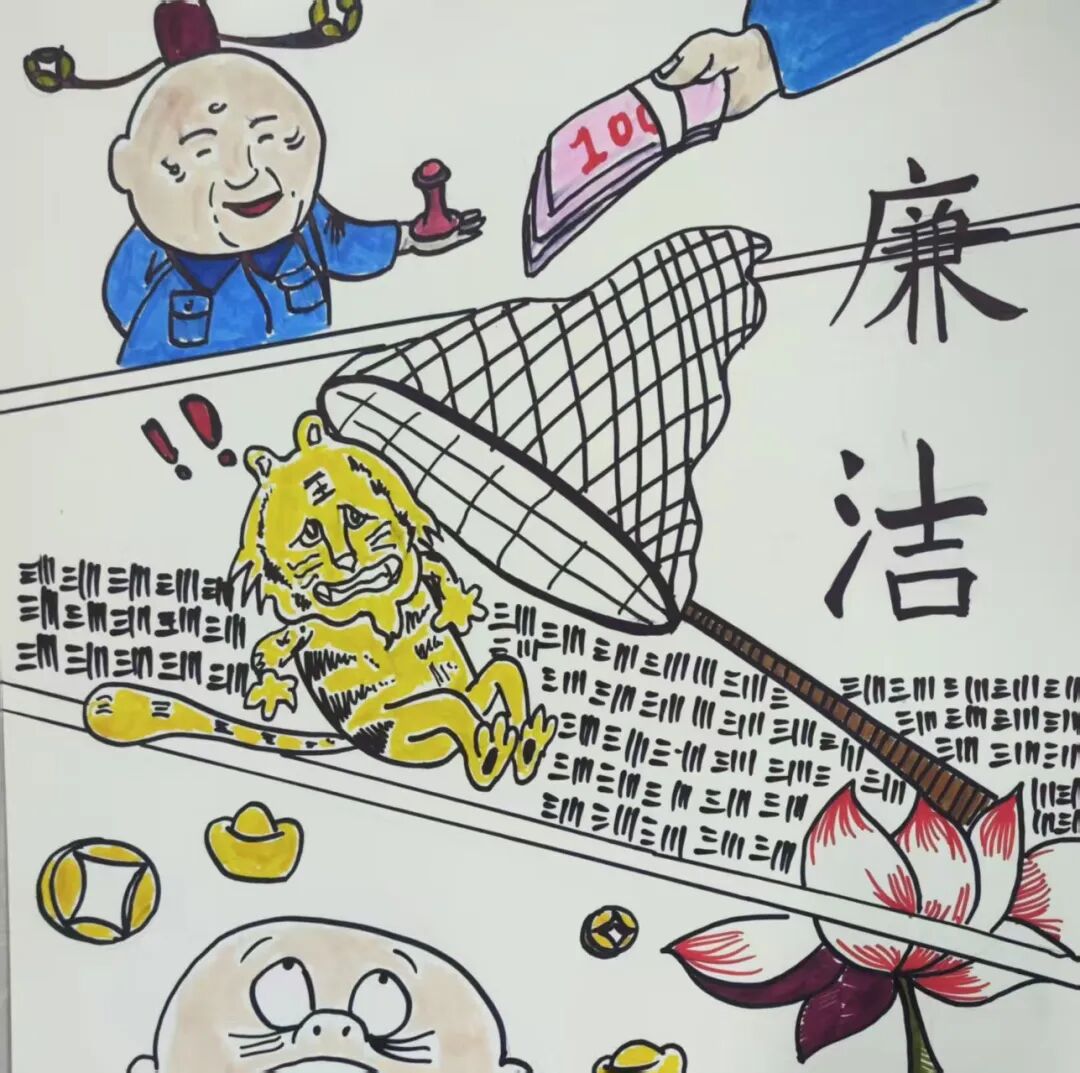 100
廉
洁
!!
王